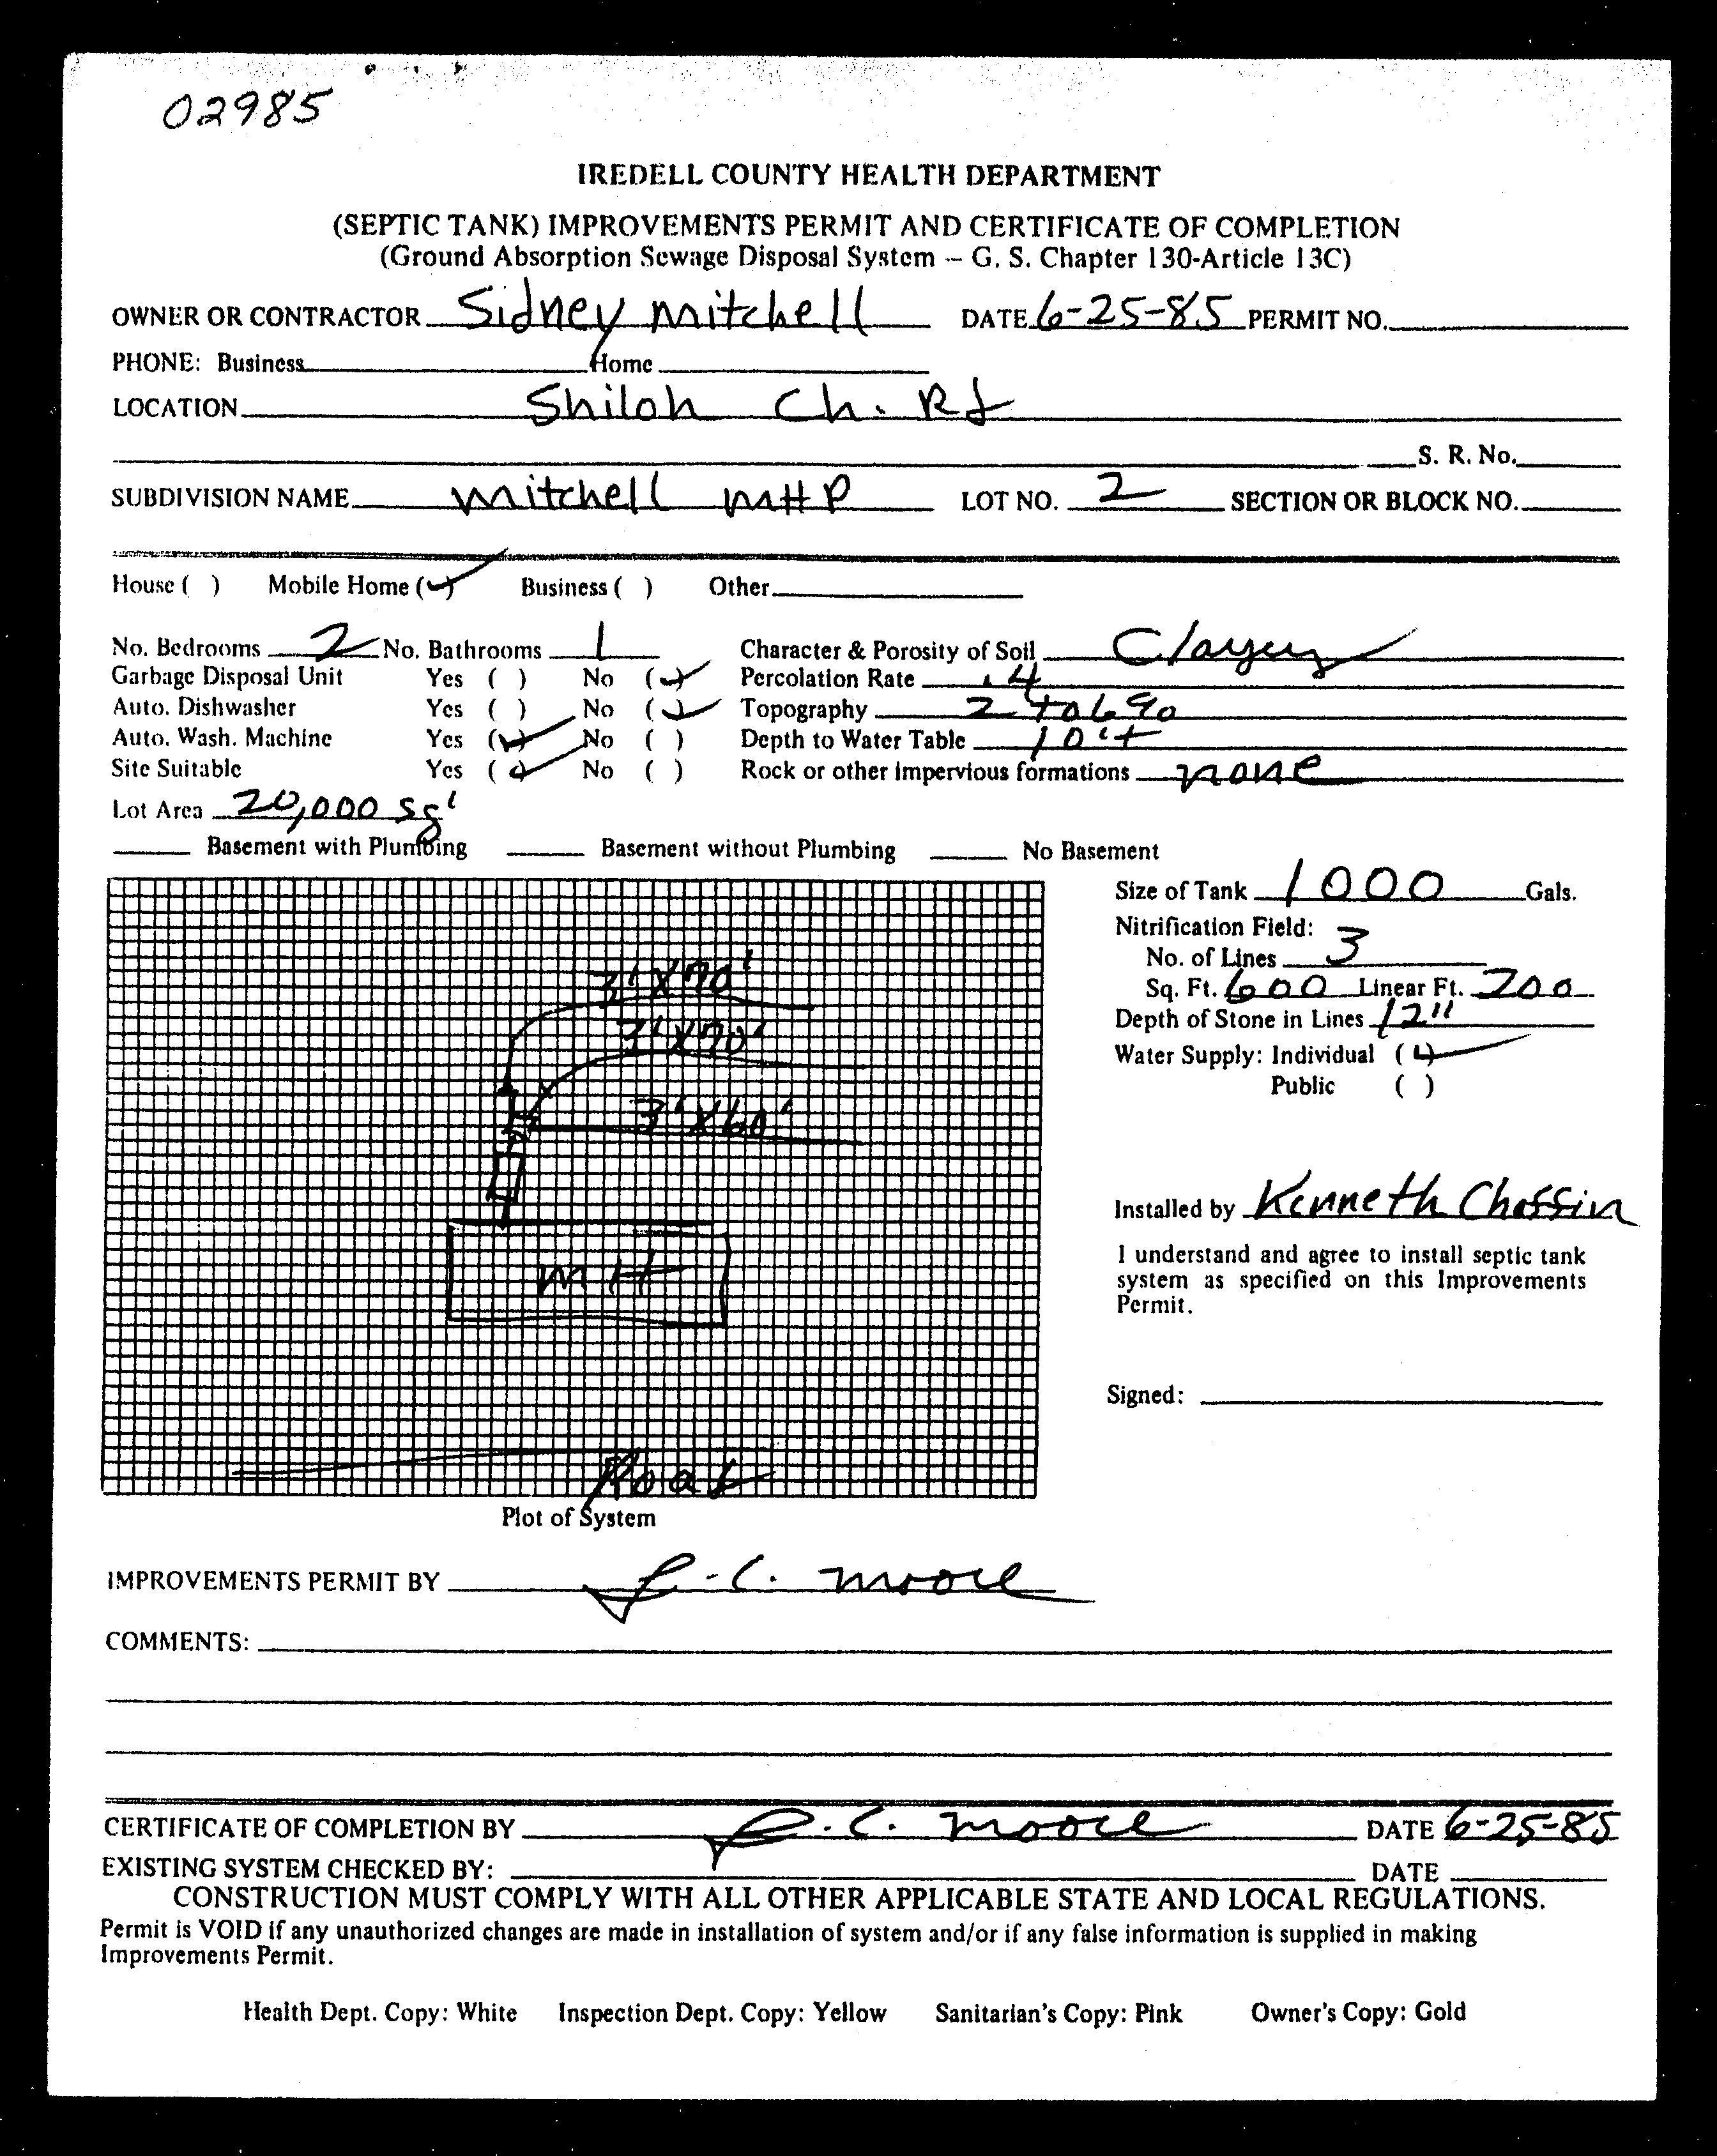 02985
IREDELL COUNTY HEALTH DEPARTMENT
(SEPTIC TANK) IMPROVEMENTS PERMIT AND CERTIFICATE OF COMPLETION
(Ground Absorption Sewage Disposal System – G. S. Chapter 130-Article 13C)
OWNER OR CONTRACTOR Sidney Mitchell DATE 6-25-85 PERMIT NO.
PHONE: Business Home
LOCATION Shiloh Ch. Rd
S. R. No.
SUBDIVISION NAME Mitchell MHP LOT NO. 2 SECTION OR BLOCK NO.
House ( ) Mobile Home (✓) Business ( ) Other
No. Bedrooms 2 No. Bathrooms 1 Character & Porosity of Soil Clayey
Garbage Disposal Unit Yes ( ) No (✓) Percolation Rate .4
Auto. Dishwasher Yes ( ) No (✓) Topography 2 to 6%
Auto. Wash. Machine Yes (✓) No ( ) Depth to Water Table 10'+
Site Suitable Yes (✓) No ( ) Rock or other impervious formations none
Lot Area 20,000 sq'
Basement with Plumbing Basement without Plumbing No Basement
Size of Tank 1000 Gals.
Nitrification Field:
No. of Lines 3
Sq. Ft. 600 Linear Ft. 200
Depth of Stone in Lines 12"
Water Supply: Individual (✓)
Public ( )
3' X 70'
3' X 70'
3' X 60'
MH
Road
Installed by Kenneth
I understand and agree to install septic tank
system as specified on this Improvements
Permit.
Signed:
Plot of System
IMPROVEMENTS PERMIT BY J.C. Moore
COMMENTS:
CERTIFICATE OF COMPLETION BY J.C. Moore DATE 6-25-85
EXISTING SYSTEM CHECKED BY: DATE
CONSTRUCTION MUST COMPLY WITH ALL OTHER APPLICABLE STATE AND LOCAL REGULATIONS.
Permit is VOID if any unauthorized changes are made in installation of system and/or if any false information is supplied in making
Improvements Permit.
Health Dept. Copy: White Inspection Dept. Copy: Yellow Sanitarian's Copy: Pink Owner's Copy: Gold